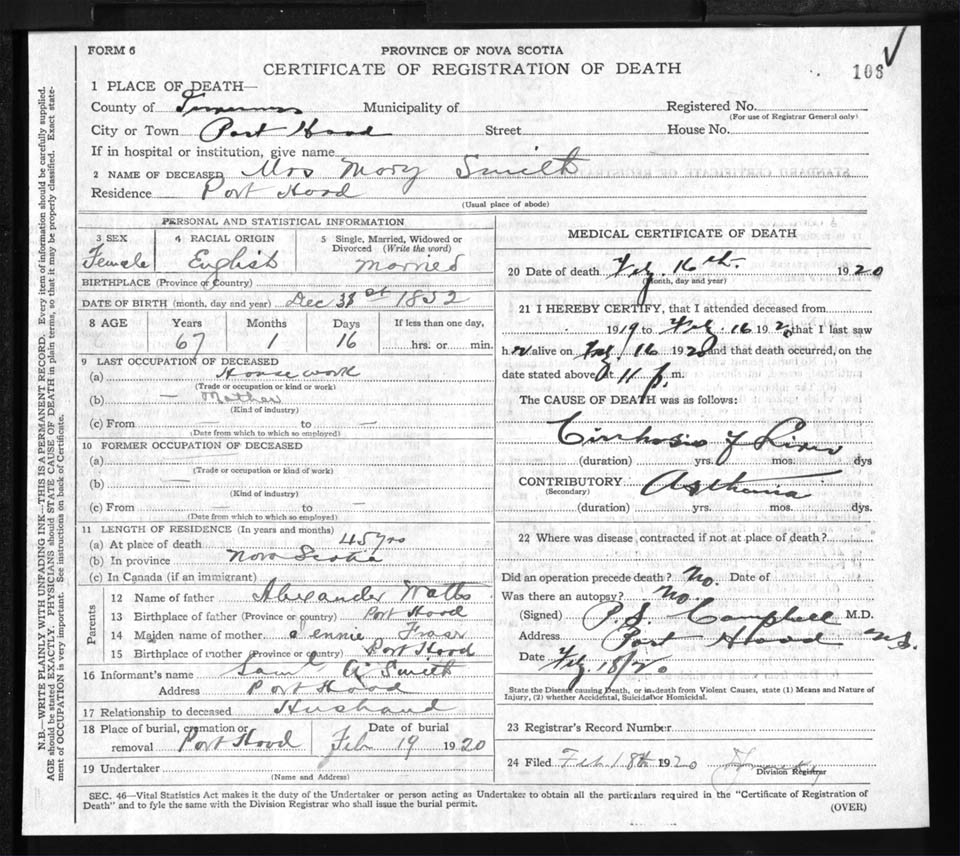 FORM 6
PROVINCE OF NOVA SCOTIA
CERTIFICATE OF REGISTRATION OF DEATH
103
1 PLACE OF DEATH—
County of Inverness Municipality of Registered No.
(For use of Registrar General only)
City or Town Port Hood Street House No.
If in hospital or institution, give name
2 NAME OF DECEASED Mrs Mary Smith
Residence Port Hood
(Usual place of abode)
PERSONAL AND STATISTICAL INFORMATION
3 SEX Female
4 RACIAL ORIGIN English
5 Single, Married, Widowed or Divorced (Write the word) Married
BIRTHPLACE (Province or Country)
DATE OF BIRTH (month, day and year) Dec 31st 1852
8 AGE Years 67 Months 1 Days 16 If less than one day, hrs. or min.
9 LAST OCCUPATION OF DECEASED
(a) Housework
(Trade or occupation or kind of work)
(b) — Mother
(Kind of industry)
(c) From — to —
(Date from which to which so employed)
10 FORMER OCCUPATION OF DECEASED
(a)
(Trade or occupation or kind of work)
(b) —
(Kind of industry)
(c) From — to —
(Date from which to which so employed)
11 LENGTH OF RESIDENCE (In years and months)
(a) At place of death 45 yrs
(b) In province Nova Scotia
(c) In Canada (if an immigrant)
Parents
12 Name of father Alexander Watts
13 Birthplace of father (Province or country) Port Hood
14 Maiden name of mother Fraser
15 Birthplace of mother (Province or country) Port Hood
16 Informant's name Saml Smith
Address Port Hood
17 Relationship to deceased Husband
18 Place of burial, cremation or removal Port Hood
Date of burial Feb 19 1920
19 Undertaker
(Name and Address)
MEDICAL CERTIFICATE OF DEATH
20 Date of death Feb. 16th. 1920
(Month, day and year)
21 I HEREBY CERTIFY, that I attended deceased from
1919 to Feb. 16 1920 that I last saw
her alive on Feb. 16 1920 and that death occurred, on the
date stated above at 11 p. m.
The CAUSE OF DEATH was as follows:
Cirrhosis of Liver
(duration) yrs. mos. dys
CONTRIBUTORY Asthenia
(Secondary)
(duration) yrs. mos. dys.
22 Where was disease contracted if not at place of death?
Did an operation precede death? No. Date of
Was there an autopsy? No.
(Signed) P.S. Campbell M.D.
Address Port Hood N.S.
Date Feb. 18/20
State the Disease causing Death, or in death from Violent Causes, state (1) Means and Nature of
Injury, (2) whether Accidental, Suicidal or Homicidal.
23 Registrar's Record Number
24 Filed Feb 18th 1920
Division Registrar
SEC. 46—Vital Statistics Act makes it the duty of the Undertaker or person acting as Undertaker to obtain all the particulars required in the "Certificate of Registration of
Death" and to fyle the same with the Division Registrar who shall issue the burial permit.
(OVER)
N.B.—WRITE PLAINLY WITH UNFADING INK—THIS IS A PERMANENT RECORD. Every item of information should be carefully supplied.
AGE should be stated EXACTLY. PHYSICIANS should STATE CAUSE OF DEATH in plain terms, so that it may be properly classified. Exact state-
ment of OCCUPATION is very important. See instructions on back of Certificate.